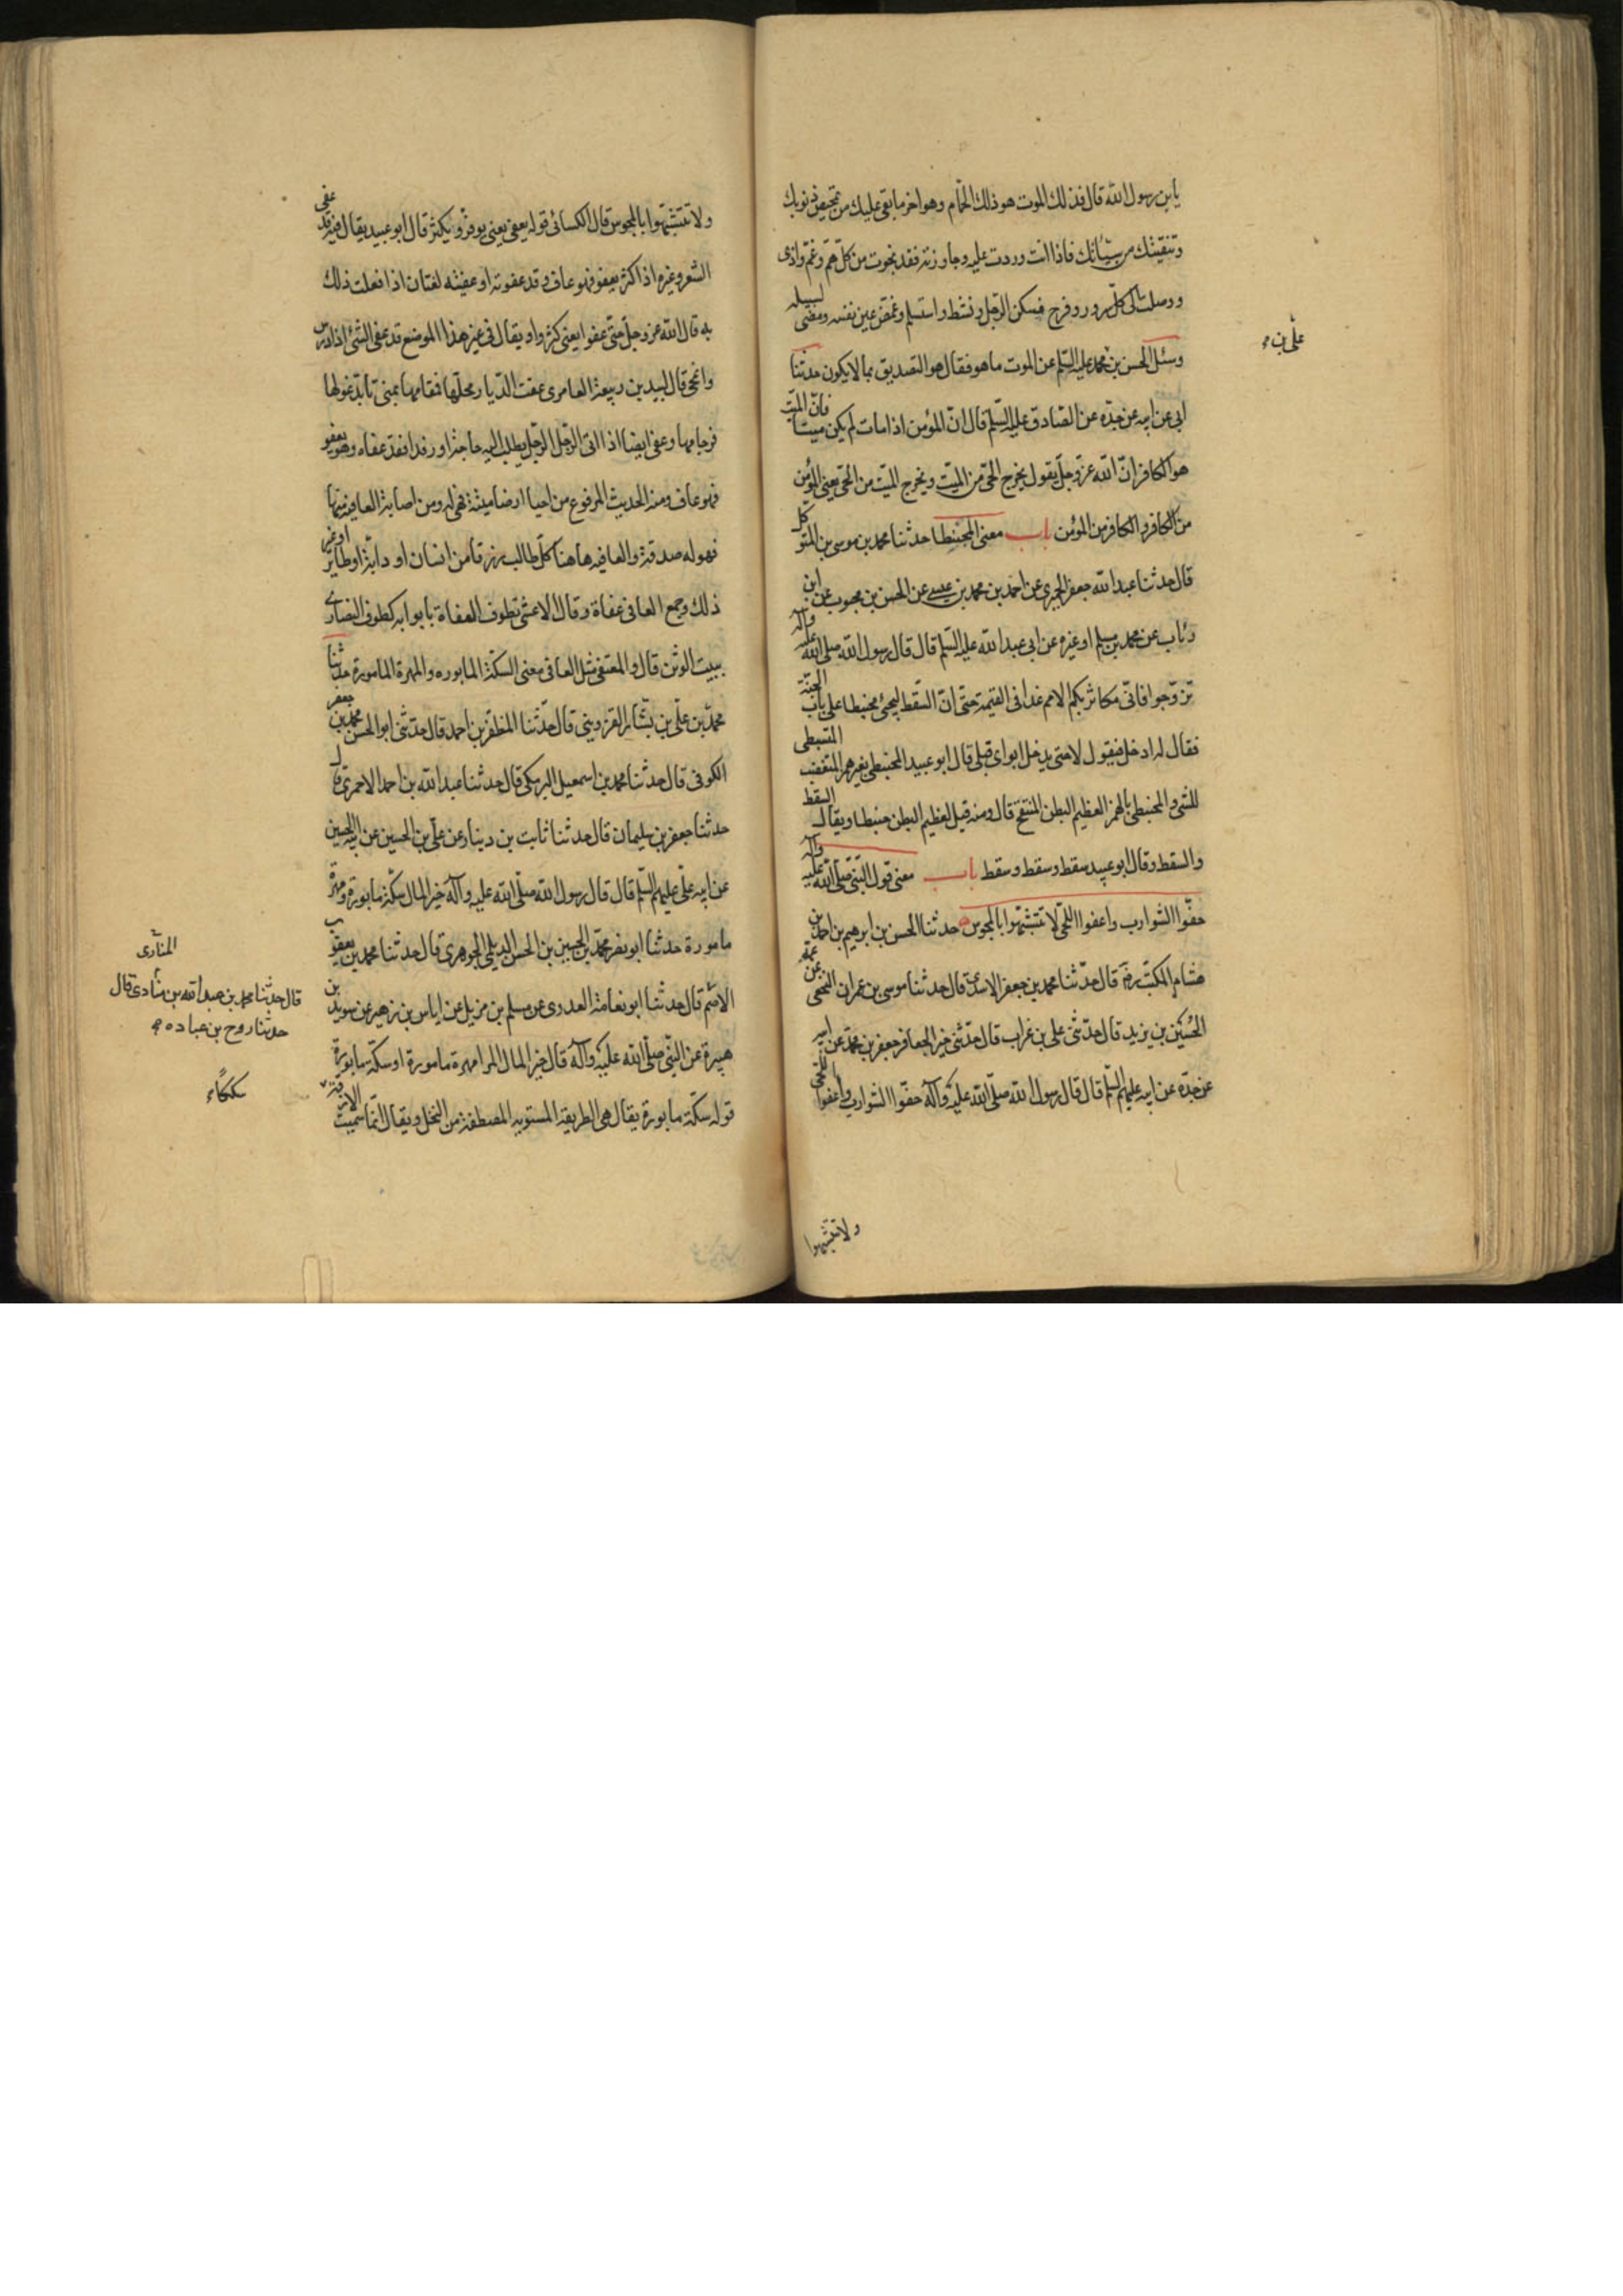 يابن رسول الله قال فذلك الموت هو ذلك الحمام وهو اخر ما بقى عليك من تمحيص ذنوبك
وتنقيتك من سيئاتك فاذا انت وردت عليه وجاوزته فقد نجوت من كل هم وغم واذى
ووصلت الى كل سرور وفرح فسكن الرجل ونشط واستسلم وغمض عين نفسه ومضى لسبيله
وسئل الحسن بن محمد عليه السلم عن الموت ما هو فقال هو التصديق بما لا يكون حدثنا
على بن
ابى عن ابيه عن جده عن الصادق عليه السلم قال ان المؤمن اذا مات لم يكن ميتا فان الميت
هو الكافر ان الله عز وجل يقول يخرج الحى من الميت ويخرج الميت من الحى يعنى المؤمن
من الكافر والكافر من المؤمن باب معنى المحبنطا حدثنا محمد بن موسى بن المتوكل
قال حدثنا عبد الله جعفر الحميرى عن احمد بن محمد بن عيسى عن الحسن بن محبوب عن ابن
رئاب عن محمد بن مسلم او غيره عن ابى عبد الله عليه السلم قال قال رسول الله صلى الله عليه وآله
تزوجوا فانى مكاثر بكم الامم غدا فى القيمة حتى ان السقط ليجئ محبنطا على باب الجنة
فقال له ادخل فيقول لا حتى يدخل ابواى قبلى قال ابو عبيد المحبنطى بغير همز المتغضب المتسبطى
للشئ والمحبنطئ بالهمز العظيم البطن المنتفخ قال ومنه قيل لعظيم البطن حبنطا ويقال السقط
والسقط وقال ابو عبيد سقط وسقط وسقط باب معنى قول النبى صلى الله عليه وآله
حفوا الشوارب واعفوا اللحى لا تتشبهوا بالمجوس حدثنا الحسن بن ابرهيم بن احمد بن
هشام المكتب رضه قال حدثنا محمد بن جعفر الاسدى قال حدثنا موسى بن عمران النخعى عن عمه
الحسين بن يزيد قال حدثنى على بن غراب قال حدثنى خير الجعافر جعفر بن محمد عن ابيه
عن جده عن ابيه عليهم السلم قال قال رسول الله صلى الله عليه وآله حفوا الشوارب واعفوا اللحى
ولا تتشبهوا
ولا تتشبهوا بالمجوس قال الكسائى قوله يعفى يعنى يوفر ويكثر قال ابو عبيد يقال فيه قد عفى
الشعر وغيره اذا كثر يعفو فهو عاف وقد عفوته او عفيته لغتان اذا فعلت ذلك
به قال الله عز وجل حتى عفوا يعنى كثروا ويقال فى غير هذا الموضع قد عفى الشئ اذا درس
وانمحى قال لبيد بن ربيعة العامرى عفت الديار محلها فمقامها بمنى تابد غولها
فرجامها وعفى ايضا اذا اتى الرجل الرجل يطلب اليه حاجة او رفدا فقد عفاه وهو يعفو
فهو عاف ومنه الحديث المرفوع من احيا ارضا ميتة فهى له ومن اصابة العافيه منها
فهو له صدقة والعافيه هاهنا كل طالب رزقا من انسان او دابة او طاير او غير
ذلك وجمع العافى عفاة وقال الاعشى تطوف العفاة بابوابه كطوف النصارى
ببيت الوثن قال والمعتفى مثل العافى معنى السكة المابوره والمهرة المامورة حدثنا
محمد بن على بن بشار القزوينى قال حدثنا المظفر بن احمد قال حدثنى ابو الحسن محمد بن جعفر
الكوفى قال حدثنا محمد بن اسمعيل البرمكى قال حدثنا عبد الله بن احمد الاحمرى قال
حدثنا جعفر بن سليمان قال حدثنا ثابت بن دينار عن على بن الحسين عن ابيه الحسين
عن ابيه على عليهم السلم قال قال رسول الله صلى الله عليه وآله خير المال سكة مابورة ومهرة
مامورة حدثنا ابو نصر محمد بن الحسين بن الحسن الديلمى الجوهرى قال حدثنا محمد بن يعقوب
الاصم قال حدثنا ابو نعامة العدوى عن مسلم بن مزيل عن اياس بن زهير عن سويد بن
المنادى
قال حدثنا محمد بن عبد الله بن منادى قال
حدثنا روح بن عباده
هبيرة عن النبى صلى الله عليه وآله قال خير المال المرا مهرة مامورة او سكة مابورة
قوله سكة مابورة يقال هى الطريقة المستويه المصطفة من النخل ويقال انما سميت الازقة
سككا